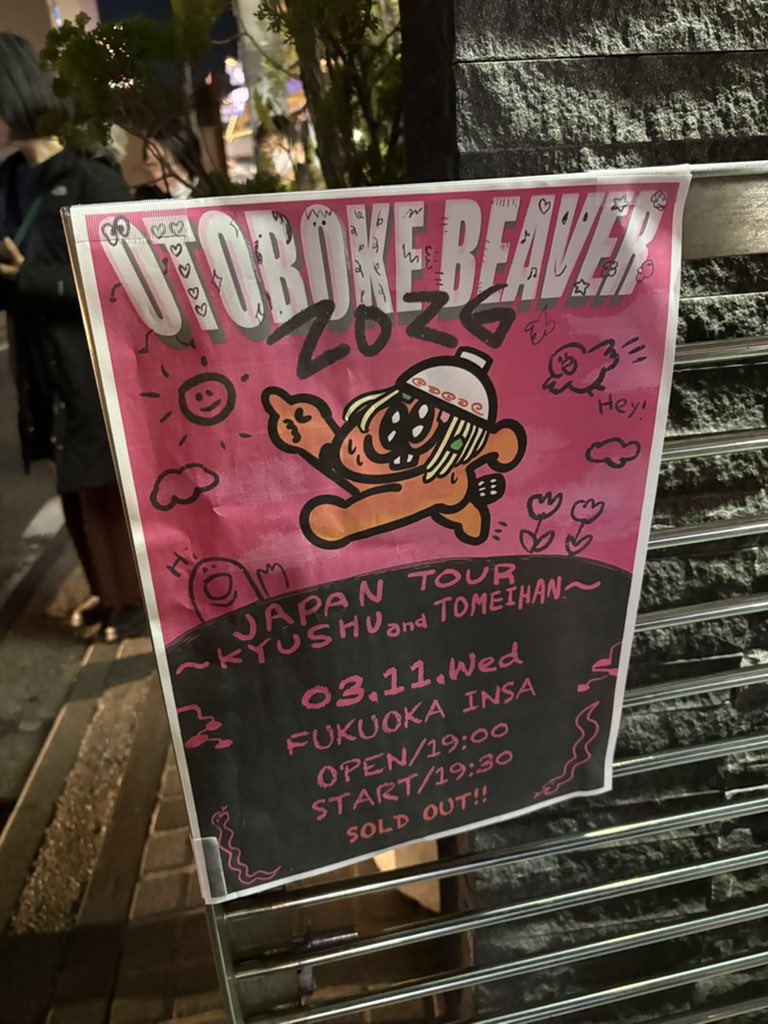 OTOBOKE BEAVER
2026
Hey!
Hi
JAPAN TOUR
~KYUSHU and TOMEIHAN~
03.11.Wed
FUKUOKA INSA
OPEN/19:00
START/19:30
SOLD OUT!!